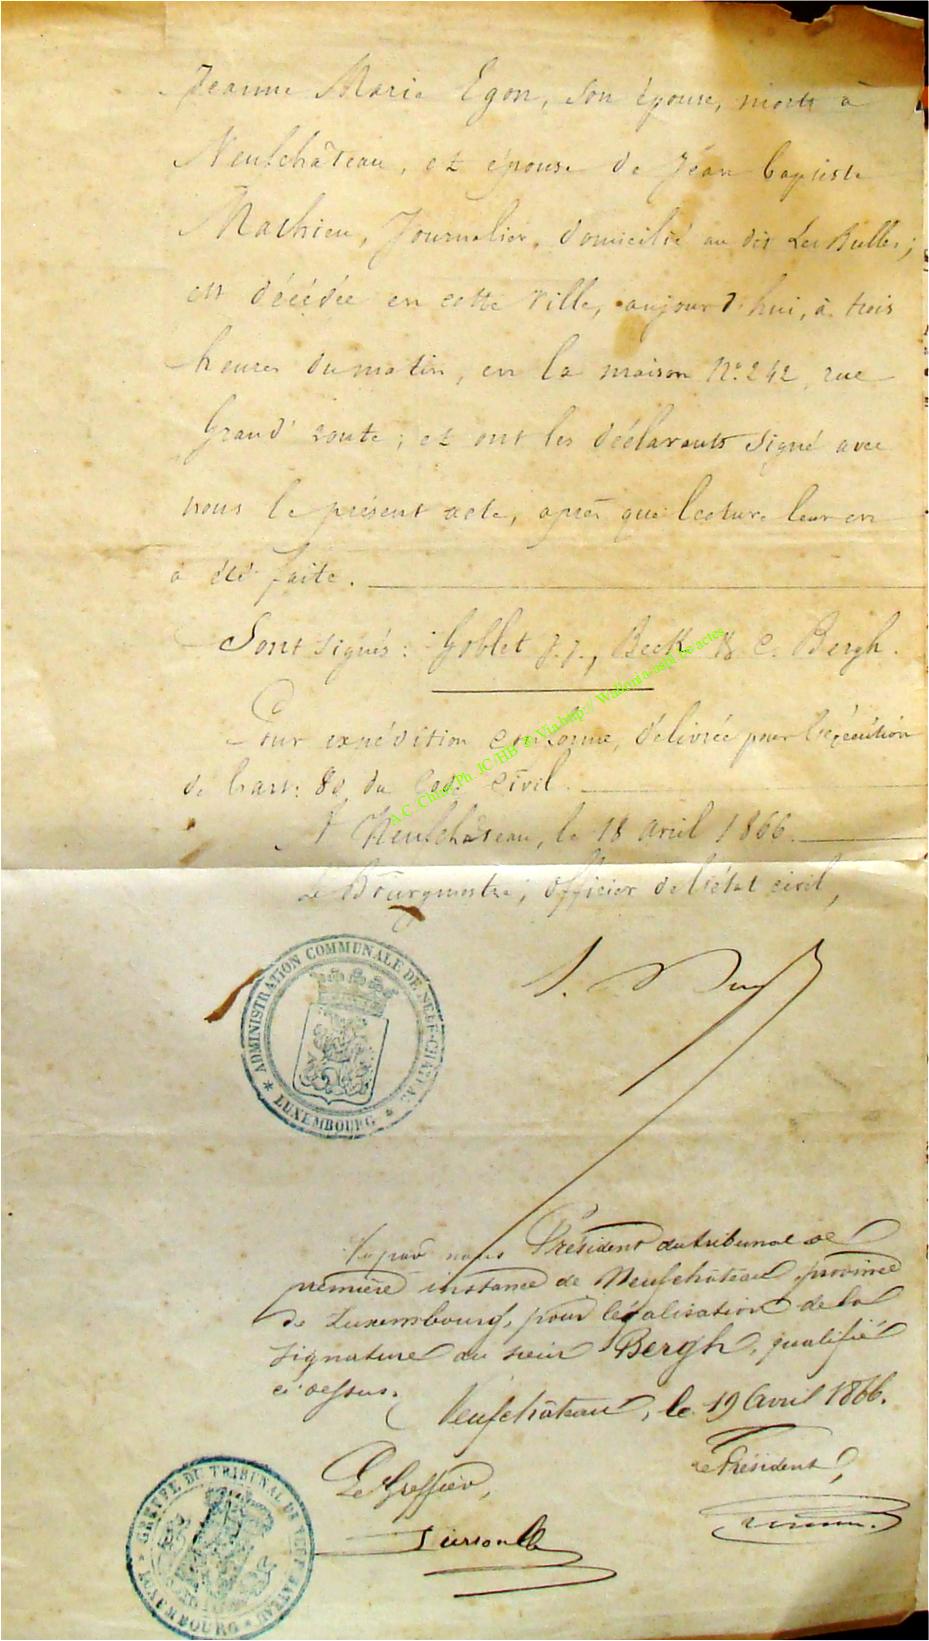 Jeanne Marie Egon, son épouse, morte à
Neufchâteau, et épouse de Jean baptiste
Mathieu, Journalier, domicilié au dit Les Bulles;
est décédée en cette ville, aujourd'hui, à trois
heures du matin, en la maison N.° 242, rue
Grand' route; et ont les déclarants signé avec
nous le présent acte, après que lecture leur en
a été faite.
Sont signés: Goblet J. J., Beck & C. Bergh.
Pour expédition conforme, délivrée pour l'exécution
de l'art: 80 du Code civil.
A Neufchâteau, le 18 avril 1866.
Le Bourgmestre, officier de l'état civil,
A.C. Chiny Ph. JC/HB & Via.http:/ Wallonia-asbl de actes
ADMINISTRATION COMMUNALE DE NEUF-CHATEAU
* LUXEMBOURG *
Vu par nous Président du tribunal de
première instance de Neufchâteau province
de Luxembourg, pour légalisation de la
signature du sieur Bergh, qualifié
ci dessus.
Neufchâteau, le 19 avril 1866.
Le Greffier,
le Président,
GREFFE DU TRIBUNAL DE NEUFCHATEAU
* LUXEMBOURG *